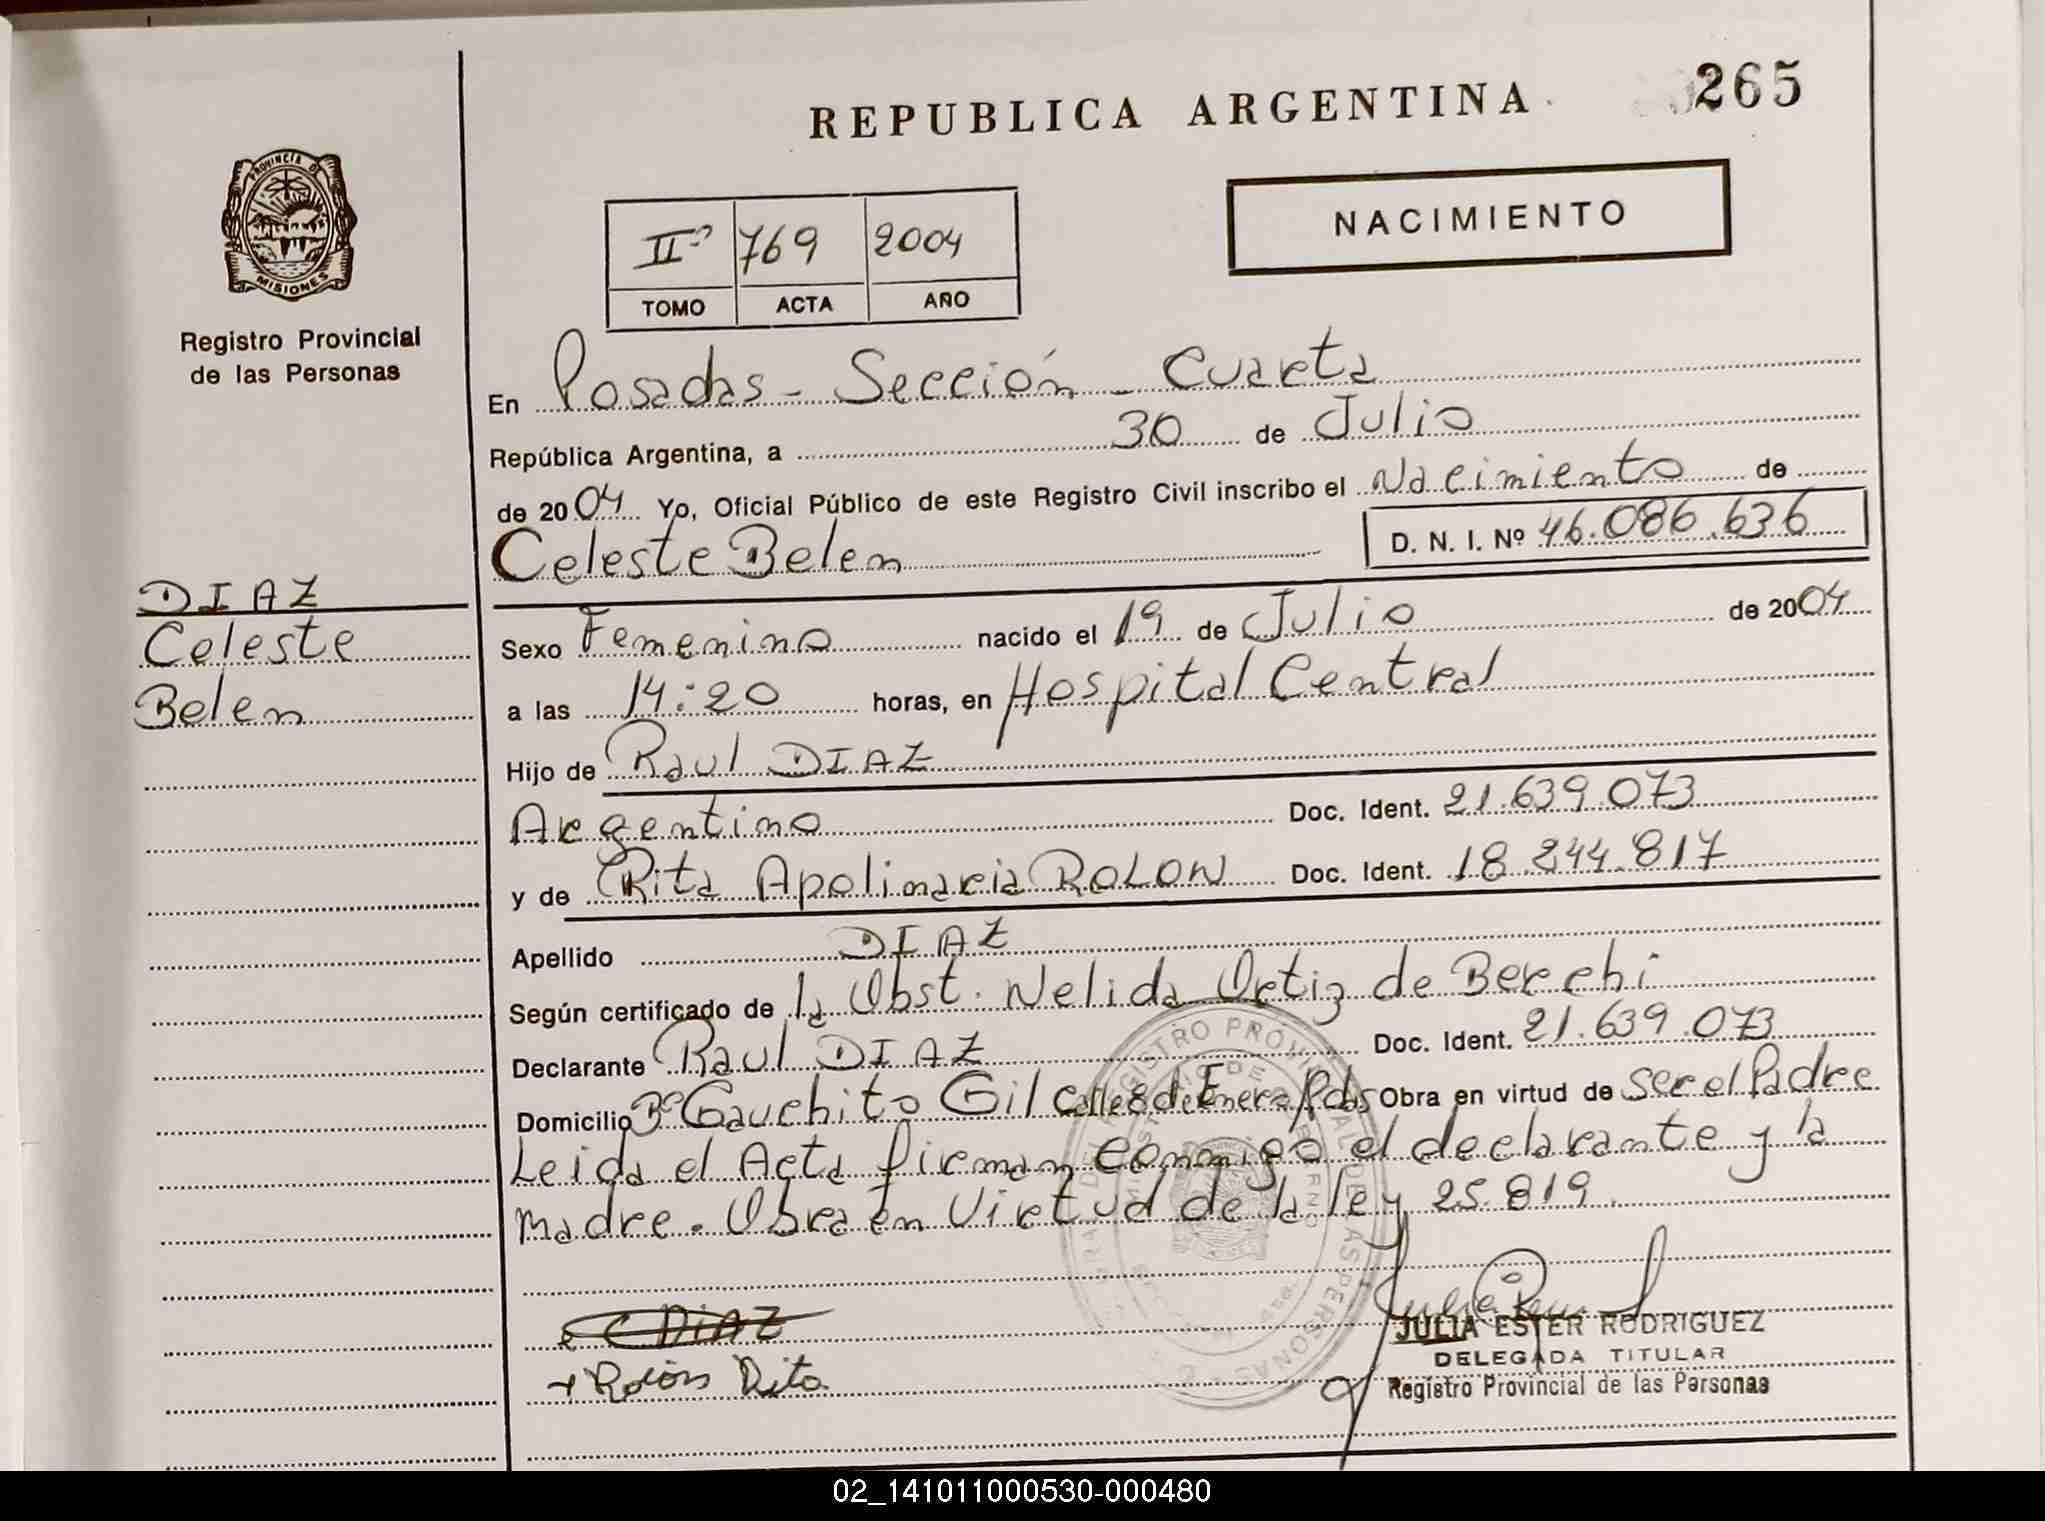 REPUBLICA ARGENTINA
265
PROVINCIA DE
MISIONES
Registro Provincial
de las Personas
NACIMIENTO
II° 769 2004
TOMO ACTA AÑO
En Posadas - Sección - Cuarta
República Argentina, a 30 de Julio
de 2004 Yo, Oficial Público de este Registro Civil inscribo el Nacimiento de
Celeste Belen D. N. I. Nº 46.086.636
DIAZ
Celeste
Belen
Sexo Femenino nacido el 19 de Julio de 2004
a las 14:20 horas, en Hospital Central
Hijo de Raul DIAZ
Argentino Doc. Ident. 21.639.073
y de Rita Apolinaria ROLON Doc. Ident. 18.244.817
Apellido DIAZ
Según certificado de la Obst. Nelida Ortiz de Berchi
Declarante Raul DIAZ Doc. Ident. 21.639.073
Domicilio Bº Gauchito Gil Calle 8 de Enero Pdas Obra en virtud de ser el Padre
Leida el Acta firman conmigo el declarante y la
madre. Obra en Virtud de la ley 25.819.
DIAZ
Rolón Rita
JULIA ESTER RODRIGUEZ
DELEGADA TITULAR
Registro Provincial de las Personas
02_141011000530-000480